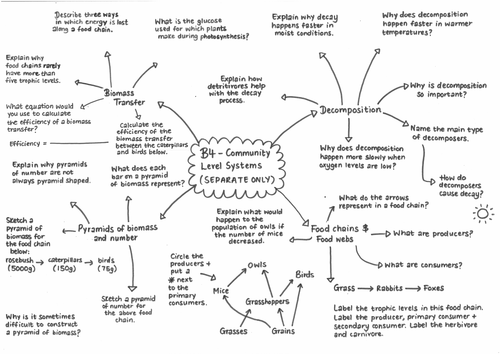 Describe three ways
in which energy is lost
along a food chain.
What is the glucose
used for which plants
make during photosynthesis?
Explain why decay
happens faster in
moist conditions.
Why does decomposition
happen faster in warmer
temperatures?
Explain why
food chains rarely
have more than
five trophic levels.
Biomass
Transfer
What equation would
you use to calculate
the efficiency of a biomass
transfer?
Efficiency =
Calculate the
efficiency of the
biomass transfer
between the caterpillars
and birds below.
Explain how
detritivores help
with the decay
process.
Decomposition
Why is decomposition
so important?
Name the main type
of decomposers.
How do
decomposers
cause decay?
Why does decomposition
happen more slowly when
oxygen levels are low?
B4 - Community
Level Systems
(SEPARATE ONLY)
Explain why pyramids
of number are not
always pyramid shaped.
What does each
bar on a pyramid of
biomass represent?
Sketch a
pyramid of
biomass for
the food chain
below:
rosebush → caterpillars → birds
(5000g) (150g) (75g)
Pyramids of biomass
and number
Why is it sometimes
difficult to construct
a pyramid of biomass?
Sketch a
pyramid of number
for the above food
chain.
Explain what would
happen to the
population of owls if
the number of mice
decreased.
What do the arrows
represent in a food chain?
Food chains &
Food webs
What are producers?
What are consumers?
Circle the
producers +
put a
* next to
the
primary
consumers.
Owls
Birds
Mice
Grasshoppers
Grasses
Grains
Grass → Rabbits → Foxes
Label the trophic levels in this food chain.
Label the producer, primary consumer +
secondary consumer. Label the herbivore
and carnivore.